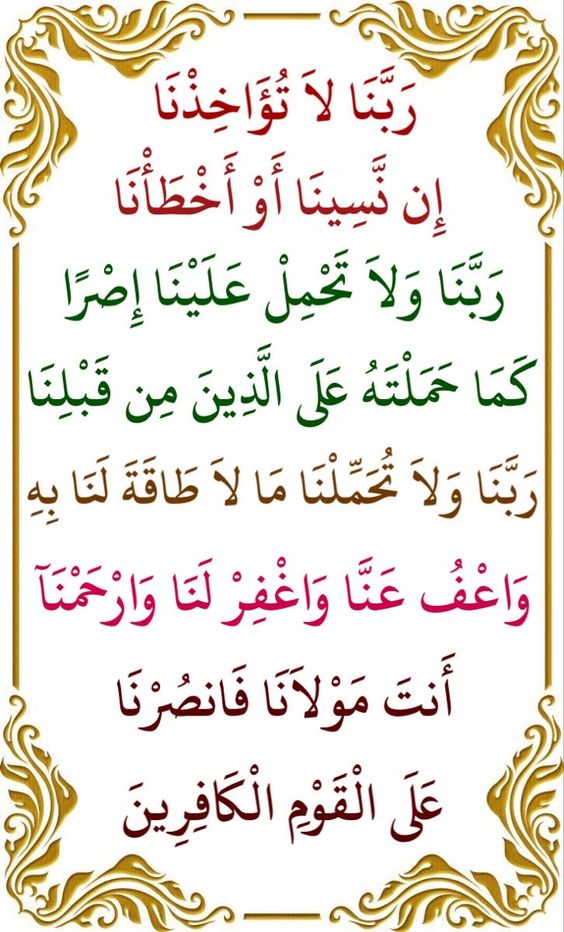 رَبَّنَا لاَ تُؤَاخِذْنَا
إِن نَّسِينَا أَوْ أَخْطَأْنَا
رَبَّنَا وَلاَ تَحْمِلْ عَلَيْنَا إِصْرًا
كَمَا حَمَلْتَهُ عَلَى الَّذِينَ مِن قَبْلِنَا
رَبَّنَا وَلاَ تُحَمِّلْنَا مَا لاَ طَاقَةَ لَنَا بِهِ
وَاعْفُ عَنَّا وَاغْفِرْ لَنَا وَارْحَمْنَآ
أَنتَ مَوْلاَنَا فَانصُرْنَا
عَلَى الْقَوْمِ الْكَافِرِينَ